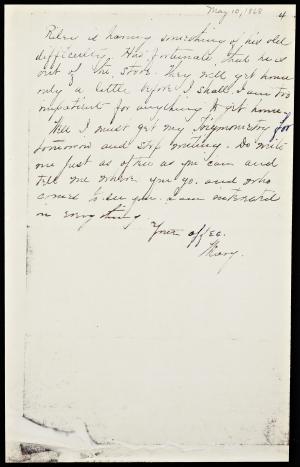 May 10, 1868
4
is having something of his old
difficulty. Was fortunate that he is
out of the store. They will get home
only a little before I shall. I am too
impatient for anything to get home.
Well I must get my Trigonometry for
tomorrow and stop writing. Do write
me just as often as you can and
tell me where you go. and who
comes to see you. I am interested
in everything.
Your affec.